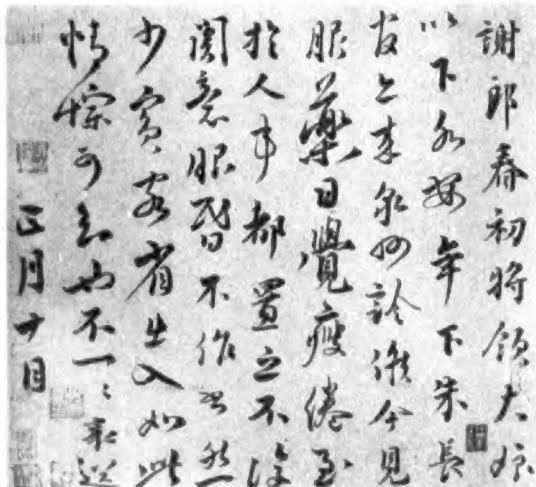 謝郎春初將領大娘
以下各安年下朱長
官來泉州診候今見
服藥日覺瘦倦至
於人事都置之不復
關意眼昏不作書然
少賓客省出入如此
情悰可知也不一一
正月十日